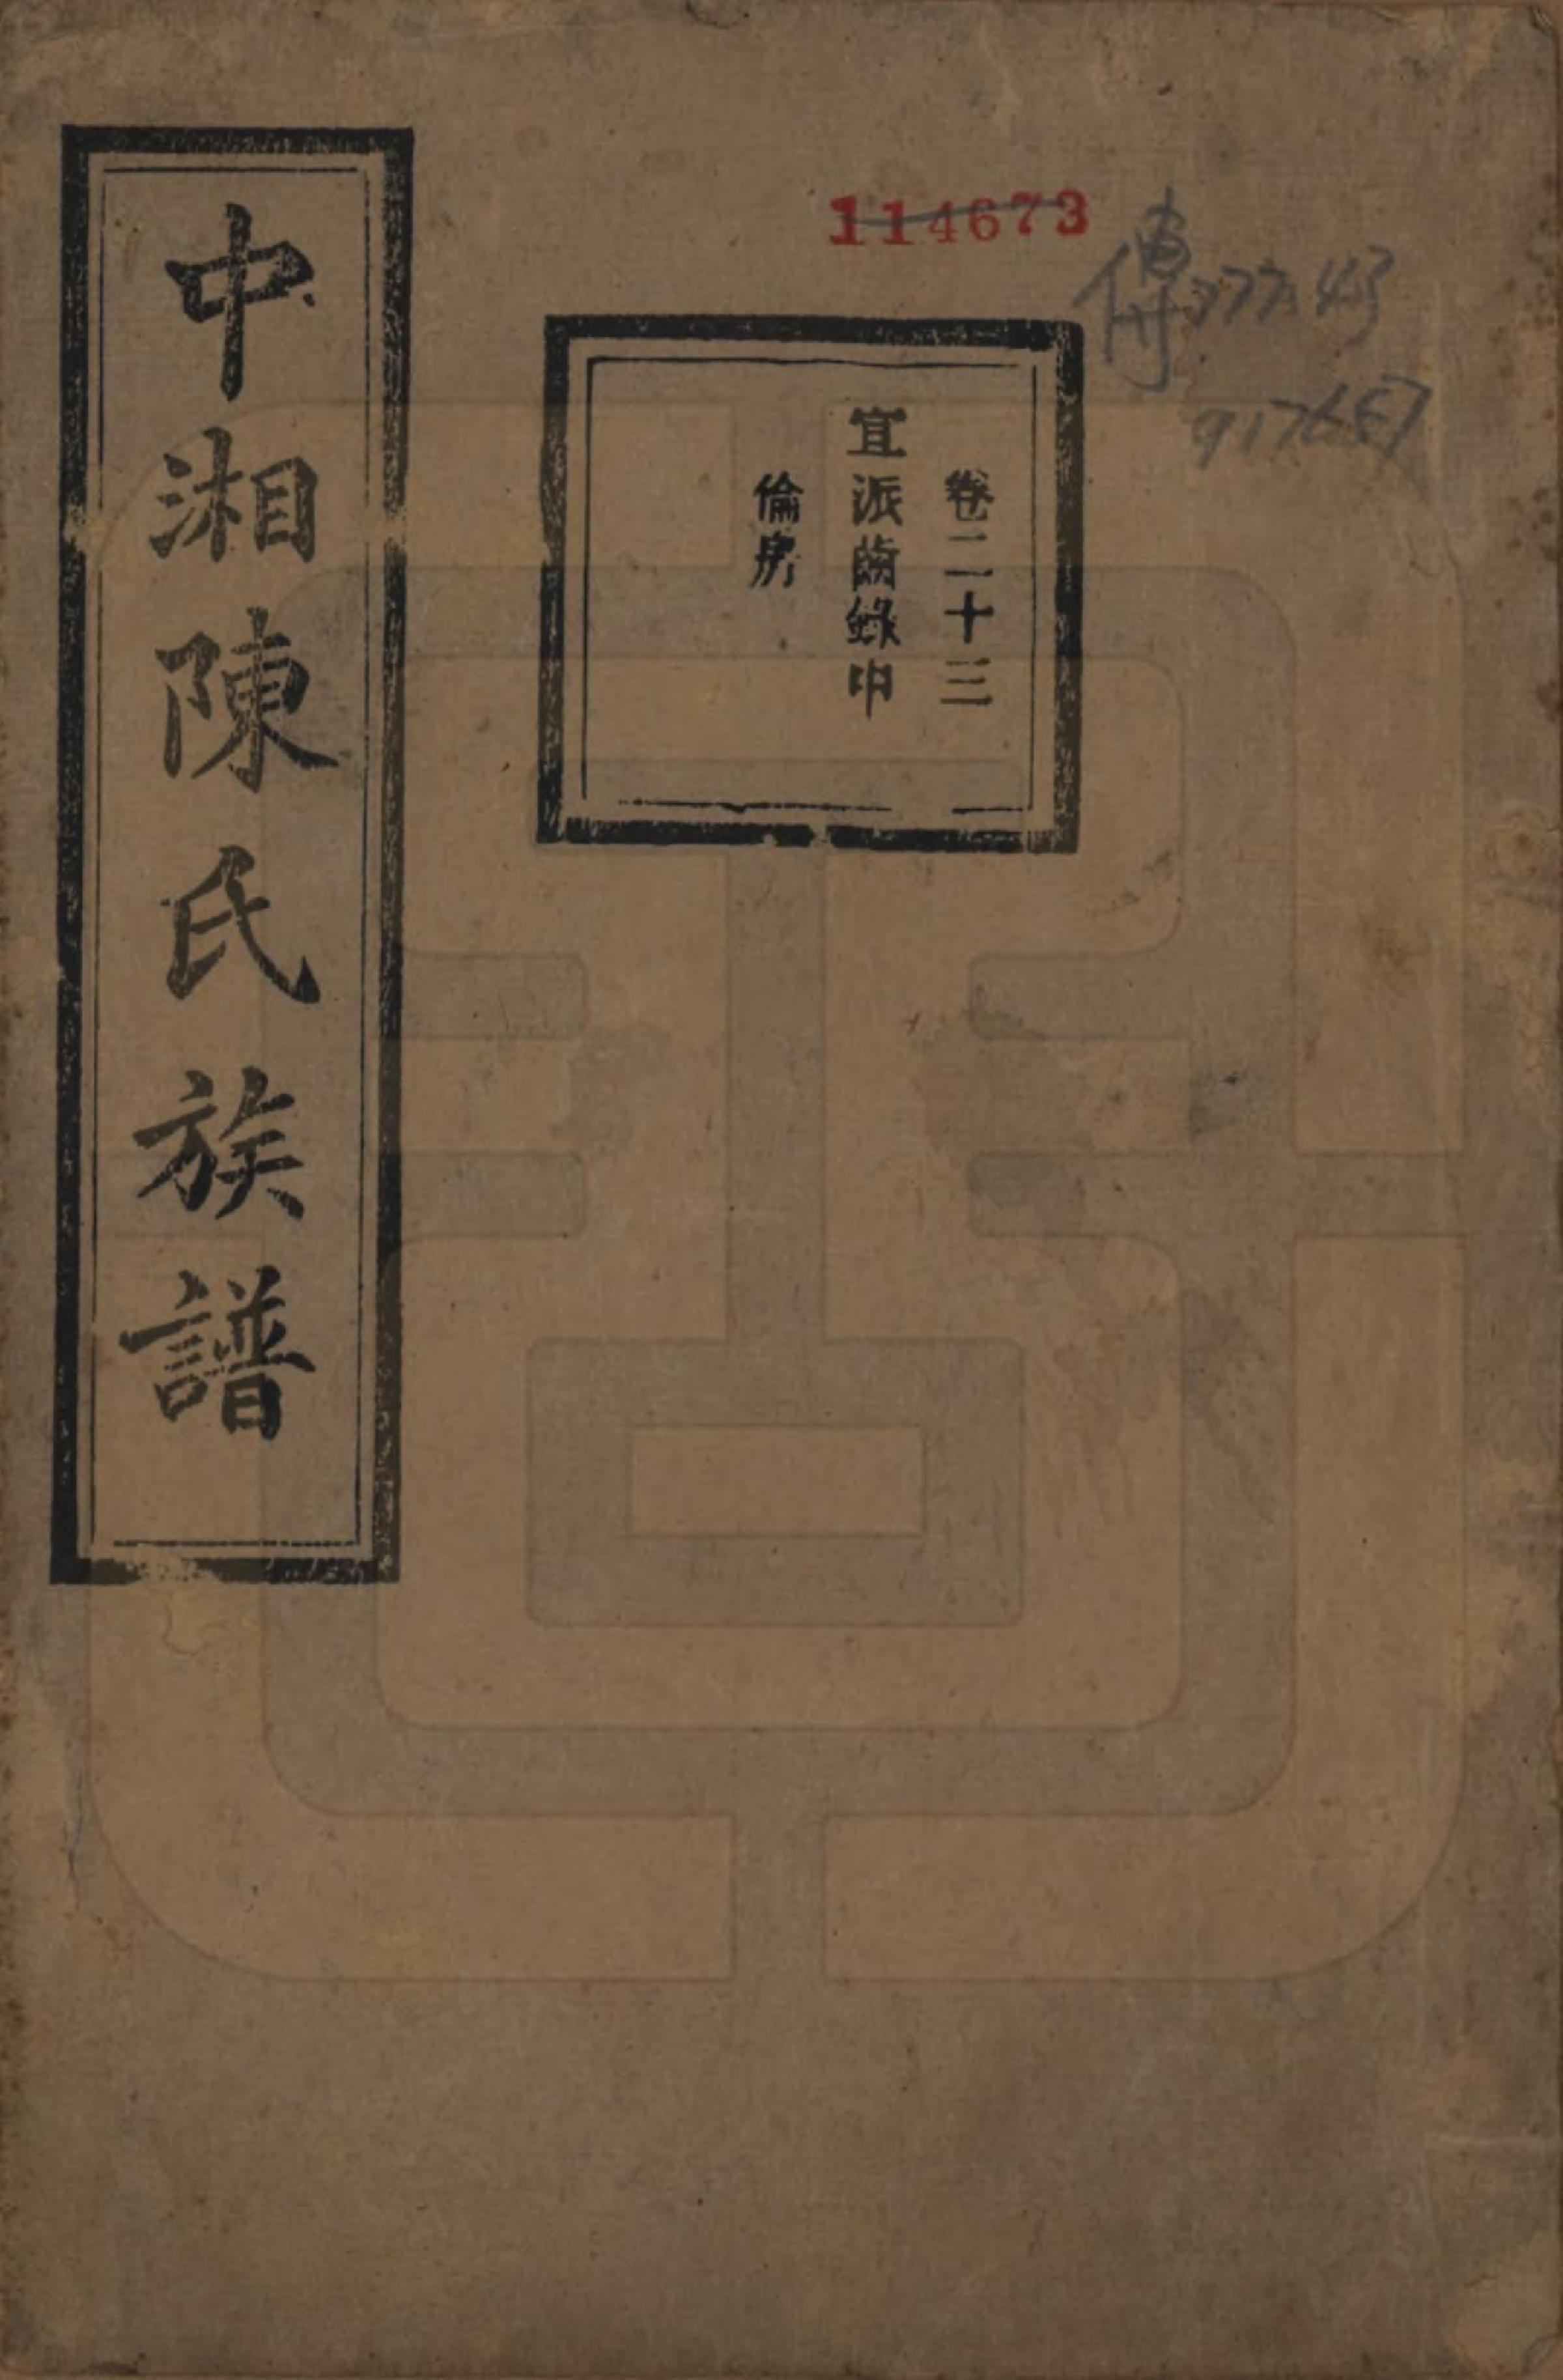 114673
傳777.43
917687
卷二十三
宜派齒錄中
倫房
中湘陳氏族譜